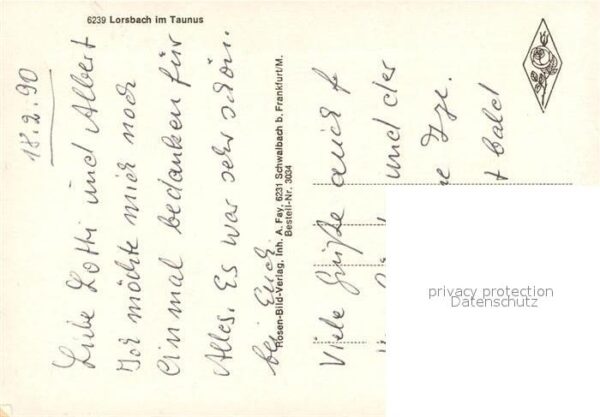 6239 Lorsbach im Taunus
18.2.90
Liebe Lotti und Albert
Ich möchte mich noch
Einmal bedanken für
Alles. Es war sehr schön.
bei Euch.
Rosen-Bild-Verlag, Inh. A. Fay, 6231 Schwalbach b. Frankfurt/M.
Bestell-Nr. 3034
Viele Grüße auch
und der
Ize.
bald
privacy protection
Datenschutz